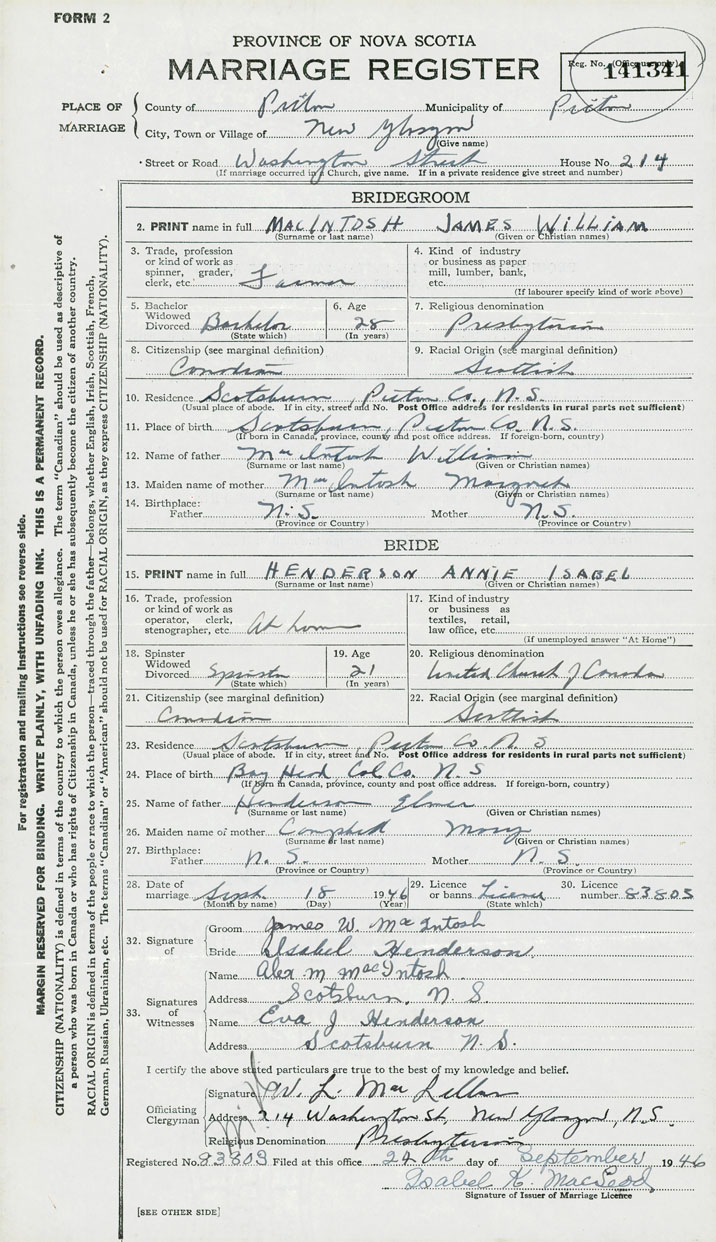 FORM 2
PROVINCE OF NOVA SCOTIA
MARRIAGE REGISTER
Reg. No. (Office use only)
141341
PLACE OF MARRIAGE
County of Pictou Municipality of Pictou
City, Town or Village of New Glasgow
(Give name)
Street or Road Washington Street House No. 214
(If marriage occurred in a Church, give name. If in a private residence give street and number)
BRIDEGROOM
2. PRINT name in full MACINTOSH JAMES WILLIAM
(Surname or last name) (Given or Christian names)
3. Trade, profession or kind of work as spinner, grader, clerk, etc. Farmer
4. Kind of industry or business as paper mill, lumber, bank, etc.
(If labourer specify kind of work above)
5. Bachelor Widowed Divorced Bachelor
(State which)
6. Age 28
(In years)
7. Religious denomination
Presbyterian
8. Citizenship (see marginal definition)
Canadian
9. Racial Origin (see marginal definition)
Scottish
10. Residence Scotsburn, Pictou Co., N.S.
(Usual place of abode. If in city, street and No. Post Office address for residents in rural parts not sufficient)
11. Place of birth Scotsburn, Pictou Co. N.S.
(If born in Canada, province, county and post office address. If foreign-born, country)
12. Name of father MacIntosh William
(Surname or last name) (Given or Christian names)
13. Maiden name of mother MacIntosh Margaret
(Surname or last name) (Given or Christian names)
14. Birthplace: Father N.S. Mother N.S.
(Province or Country) (Province or Country)
BRIDE
15. PRINT name in full HENDERSON ANNIE ISABEL
(Surname or last name) (Given or Christian names)
16. Trade, profession or kind of work as operator, clerk, stenographer, etc At home
17. Kind of industry or business as textiles, retail, law office, etc.
(If unemployed answer "At Home")
18. Spinster Widowed Divorced Spinster
(State which)
19. Age 21
(In years)
20. Religious denomination
United Church of Canada
21. Citizenship (see marginal definition)
Canadian
22. Racial Origin (see marginal definition)
Scottish
23. Residence Scotsburn, Pictou Co. N S
(Usual place of abode. If in city, street and No. Post Office address for residents in rural parts not sufficient)
24. Place of birth Bay Head Col. Co. N S
(If born in Canada, province, county and post office address. If foreign-born, country)
25. Name of father Henderson Elmer
(Surname or last name) (Given or Christian names)
26. Maiden name of mother Campbell Mary
(Surname or last name) (Given or Christian names)
27. Birthplace: Father N. S. Mother N. S.
(Province or Country) (Province or Country)
28. Date of marriage Sept. 18 1946
(Month by name) (Day) (Year)
29. Licence or banns License
(State which)
30. Licence number 83803
32. Signature of
Groom James W. MacIntosh
Bride Isabel Henderson
33. Signatures of Witnesses
Name Alex M MacIntosh
Address Scotsburn, N. S.
Name Eva J Henderson
Address Scotsburn N. S.
I certify the above stated particulars are true to the best of my knowledge and belief.
Officiating Clergyman
Signature W. L. MacLellan
Address 214 Washington St, New Glasgow, N.S.
Religious Denomination Presbyterian
Registered No. 83803 Filed at this office 24th day of September 1946
Isabel K. MacLeod
Signature of Issuer of Marriage Licence
[SEE OTHER SIDE]
For registration and mailing instructions see reverse side.
MARGIN RESERVED FOR BINDING. WRITE PLAINLY, WITH UNFADING INK. THIS IS A PERMANENT RECORD.
CITIZENSHIP (NATIONALITY) is defined in terms of the country to which the person owes allegiance. The term "Canadian" should be used as descriptive of
a person who was born in Canada or who has rights of Citizenship in Canada, unless he or she has subsequently become the citizen of another country.
RACIAL ORIGIN is defined in terms of the people or race to which the person—traced through the father—belongs, whether English, Irish, Scottish, French,
German, Russian, Ukrainian, etc. The terms "Canadian" or "American" should not be used for RACIAL ORIGIN, as they express CITIZENSHIP (NATIONALITY).